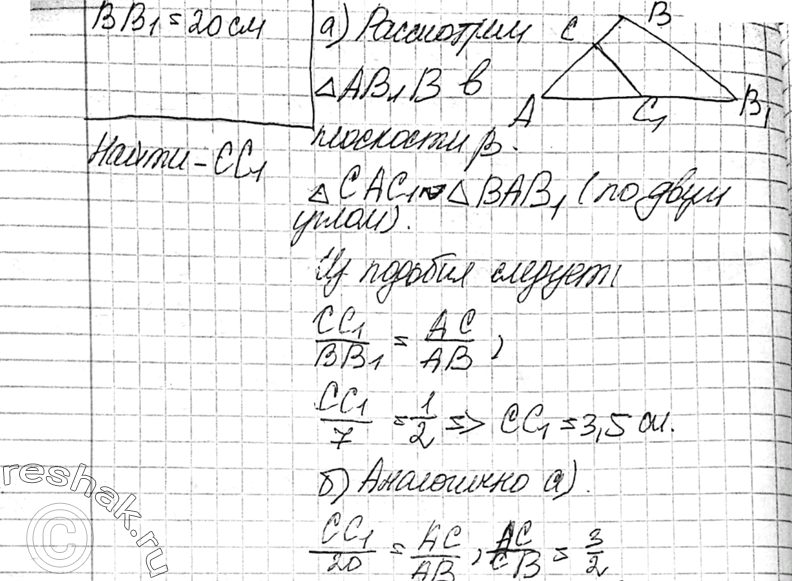 BB₁ = 20 см
Найти - CC₁
а) Рассмотрим
△AB₁B в
плоскости β.
△CAC₁ ~ △BAB₁ (по двум
углам).
Из подобия следует
CC₁/BB₁ = AC/AB,
CC₁/7 = 1/2 => CC₁ = 3,5 см.
б) Аналогично а).
CC₁/20 = AC/AB, AC/CB = 3/2
C
B
A
C₁
B₁
©reshak.ru